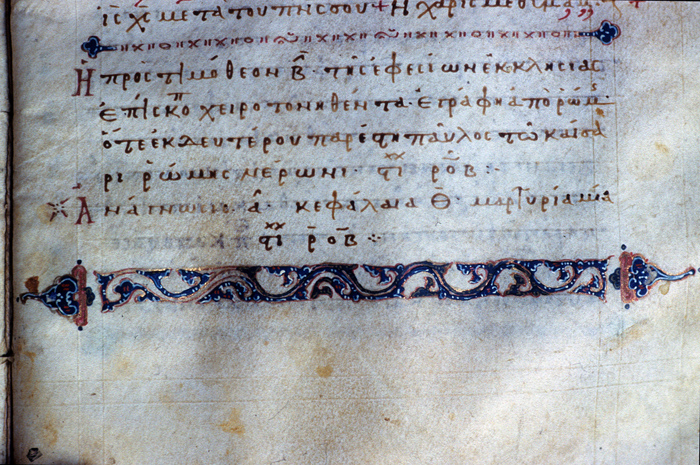 ις χς μετα του πνς σου + Η χαρις μεθ ημων
Η προς τιμοθεον Β̄· της εφεσιων εκκλησιας
επισκοπ χειροτονηθεντα· εγραφη απο ρωμς·
ότε εκ δευτερου παρέστη παυλος τω καισα
ρι ρωμης νερωνι· στί ρο̄β :·
Αναγνωσις· ᾱ· κεφαλαια θ̄· μαρτυρια μια
στί ρο̄β :·